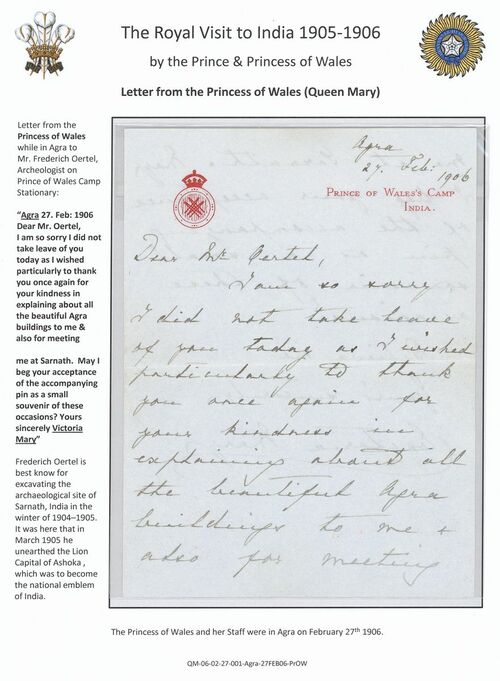 The Royal Visit to India 1905-1906
by the Prince & Princess of Wales
Letter from the Princess of Wales (Queen Mary)
Letter from the
Princess of Wales
while in Agra to
Mr. Frederich Oertel,
Archeologist on
Prince of Wales Camp
Stationary:
"Agra 27. Feb: 1906
Dear Mr. Oertel,
I am so sorry I did not
take leave of you
today as I wished
particularly to thank
you once again for
your kindness in
explaining about all
the beautiful Agra
buildings to me &
also for meeting
me at Sarnath. May I
beg your acceptance
of the accompanying
pin as a small
souvenir of these
occasions? Yours
sincerely Victoria
Mary"
Frederich Oertel is
best know for
excavating the
archaeological site of
Sarnath, India in the
winter of 1904–1905.
It was here that in
March 1905 he
unearthed the Lion
Capital of Ashoka ,
which was to become
the national emblem
of India.
Agra
27. Feb: 1906
PRINCE OF WALES'S CAMP
INDIA.
Dear Mr Oertel,
I am so sorry
I did not take leave
of you today as I wished
particularly to thank
you once again for
your kindness in
explaining about all
the beautiful Agra
buildings to me +
also for meeting
The Princess of Wales and her Staff were in Agra on February 27th 1906.
QM-06-02-27-001-Agra-27FEB06-PrOW